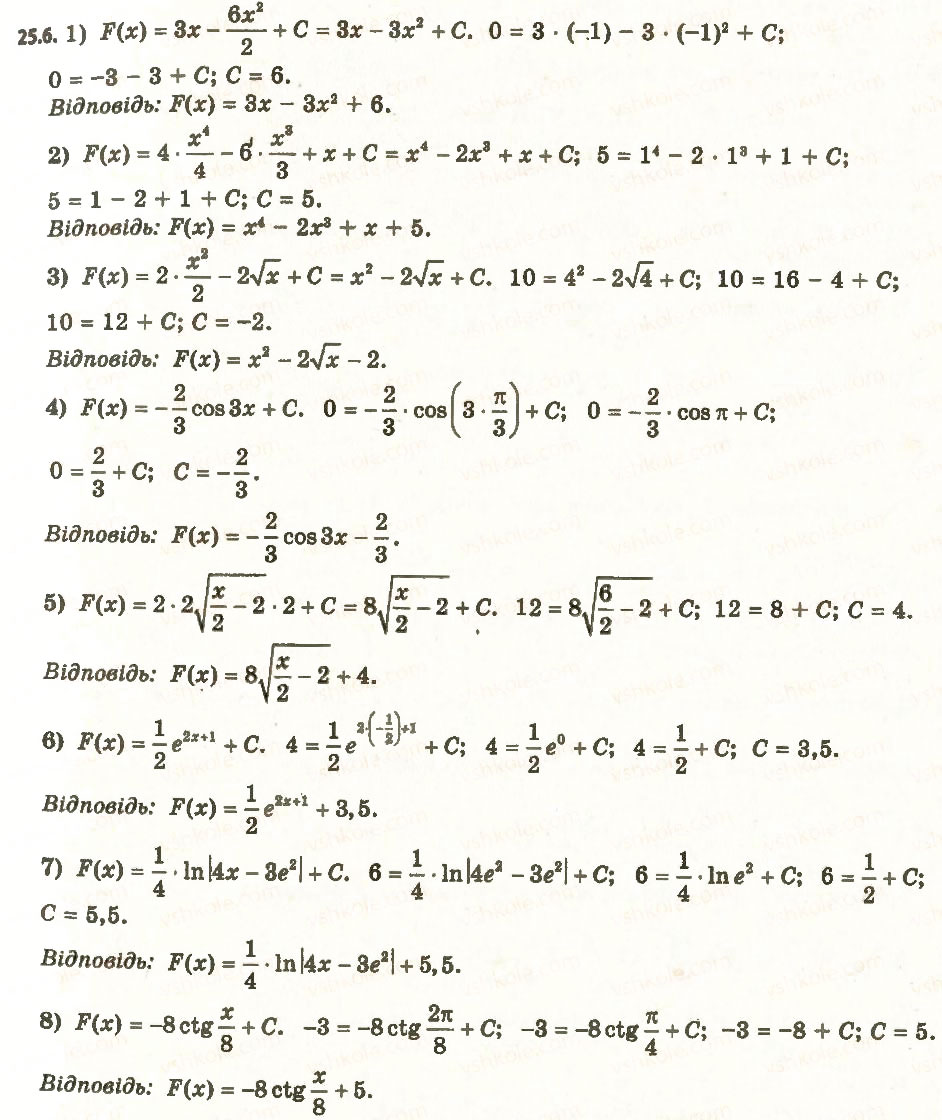 25.6. 1) F(x) = 3x − 6x²/2 + C = 3x − 3x² + C. 0 = 3 · (−1) − 3 · (−1)² + C;
0 = −3 − 3 + C; C = 6.
Відповідь: F(x) = 3x − 3x² + 6.
2) F(x) = 4 · x⁴/4 − 6 · x³/3 + x + C = x⁴ − 2x³ + x + C; 5 = 1⁴ − 2 · 1³ + 1 + C;
5 = 1 − 2 + 1 + C; C = 5.
Відповідь: F(x) = x⁴ − 2x³ + x + 5.
3) F(x) = 2 · x²/2 − 2√x + C = x² − 2√x + C. 10 = 4² − 2√4 + C; 10 = 16 − 4 + C;
10 = 12 + C; C = −2.
Відповідь: F(x) = x² − 2√x − 2.
4) F(x) = −2/3 cos3x + C. 0 = −2/3 · cos(3 · π/3) + C; 0 = −2/3 · cos π + C;
0 = 2/3 + C; C = −2/3.
Відповідь: F(x) = −2/3 cos3x − 2/3.
5) F(x) = 2 · 2√(x/2 − 2) · 2 + C = 8√(x/2 − 2) + C. 12 = 8√(6/2 − 2) + C; 12 = 8 + C; C = 4.
Відповідь: F(x) = 8√(x/2 − 2) + 4.
6) F(x) = 1/2 e^(2x+1) + C. 4 = 1/2 e^(2·(−1/2)+1) + C; 4 = 1/2 e⁰ + C; 4 = 1/2 + C; C = 3,5.
Відповідь: F(x) = 1/2 e^(2x+1) + 3,5.
7) F(x) = 1/4 · ln|4x − 3e²| + C. 6 = 1/4 · ln|4e² − 3e²| + C; 6 = 1/4 · ln e² + C; 6 = 1/2 + C;
C = 5,5.
Відповідь: F(x) = 1/4 · ln|4x − 3e²| + 5,5.
8) F(x) = −8 ctg x/8 + C. −3 = −8 ctg 2π/8 + C; −3 = −8 ctg π/4 + C; −3 = −8 + C; C = 5.
Відповідь: F(x) = −8 ctg x/8 + 5.